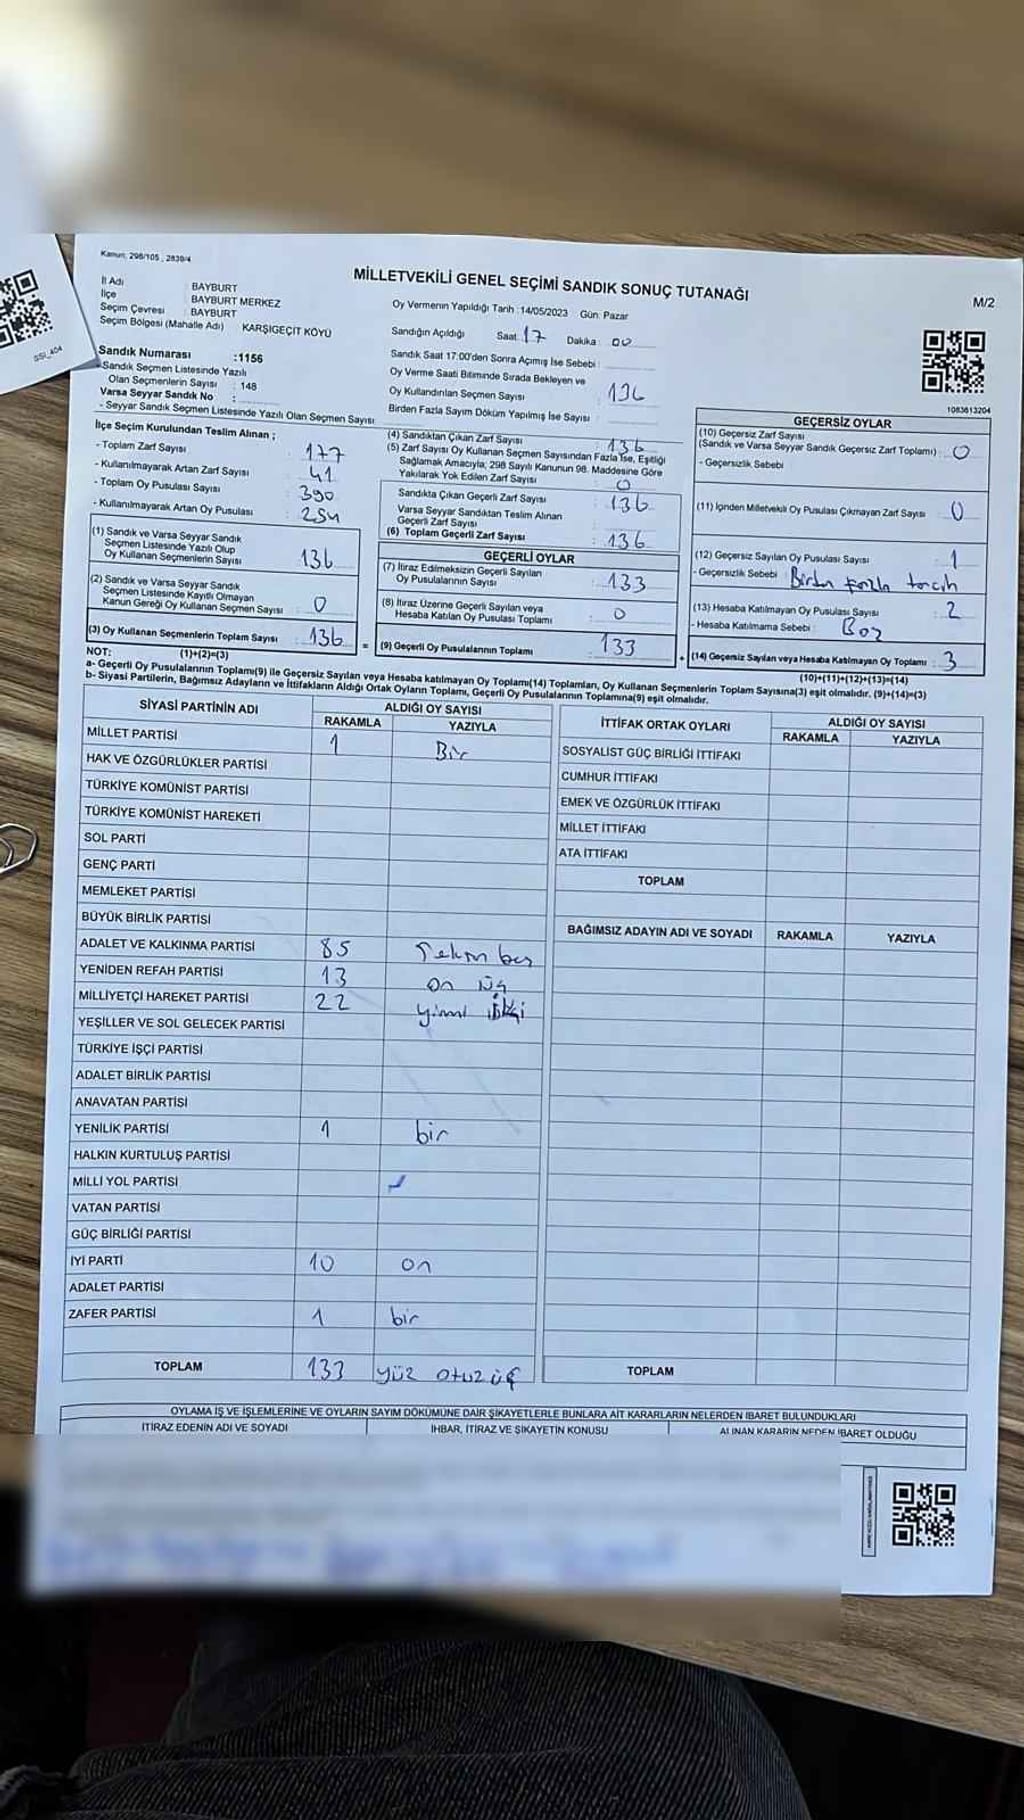 Kanun: 298/105 , 2839/4
MİLLETVEKİLİ GENEL SEÇİMİ SANDIK SONUÇ TUTANAĞI
M/2
İl Adı BAYBURT
İlçe BAYBURT MERKEZ
Seçim Çevresi BAYBURT
Seçim Bölgesi (Mahalle Adı) KARŞIGEÇİT KÖYÜ
Oy Vermenin Yapıldığı Tarih :14/05/2023 Gün: Pazar
Sandığın Açıldığı Saat: 17 Dakika : 00
SSİ_404
Sandık Numarası :1156
Sandık Seçmen Listesinde Yazılı
Olan Seçmenlerin Sayısı : 148
Varsa Seyyar Sandık No :
- Seyyar Sandık Seçmen Listesinde Yazılı Olan Seçmen Sayısı
Sandık Saat 17:00'den Sonra Açımış İse Sebebi :
Oy Verme Saati Bitiminde Sırada Bekleyen ve
Oy Kullandırılan Seçmen Sayısı : 136
Birden Fazla Sayım Döküm Yapılmış İse Sayısı :
1083613204
İlçe Seçim Kurulundan Teslim Alınan ;
- Toplam Zarf Sayısı : 177
- Kullanılmayarak Artan Zarf Sayısı : 41
- Toplam Oy Pusulası Sayısı : 390
- Kullanılmayarak Artan Oy Pusulası : 254
(1) Sandık ve Varsa Seyyar Sandık
Seçmen Listesinde Yazılı Olup
Oy Kullanan Seçmenlerin Sayısı : 136
(2) Sandık ve Varsa Seyyar Sandık
Seçmen Listesinde Kayıtlı Olmayan
Kanun Gereği Oy Kullanan Seçmen Sayısı : 0
(3) Oy Kullanan Seçmenlerin Toplam Sayısı : 136
(4) Sandıktan Çıkan Zarf Sayısı : 136
(5) Zarf Sayısı Oy Kullanan Seçmen Sayısından Fazla İse, Eşitliği
Sağlamak Amacıyla; 298 Sayılı Kanunun 98. Maddesine Göre
Yakılarak Yok Edilen Zarf Sayısı : 0
Sandıkta Çıkan Geçerli Zarf Sayısı : 136
Varsa Seyyar Sandıktan Teslim Alınan
Geçerli Zarf Sayısı :
(6) Toplam Geçerli Zarf Sayısı : 136
GEÇERLİ OYLAR
(7) İtiraz Edilmeksizin Geçerli Sayılan
Oy Pusulalarının Sayısı : 133
(8) İtiraz Üzerine Geçerli Sayılan veya
Hesaba Katılan Oy Pusulası Toplamı : 0
= (9) Geçerli Oy Pusulalarının Toplamı : 133
GEÇERSİZ OYLAR
(10) Geçersiz Zarf Sayısı
(Sandık ve Varsa Seyyar Sandık Geçersiz Zarf Toplamı) : 0
- Geçersizlik Sebebi
(11) İçinden Milletvekili Oy Pusulası Çıkmayan Zarf Sayısı : 0
(12) Geçersiz Sayılan Oy Pusulası Sayısı : 1
- Geçersizlik Sebebi : Birden fazla tercih
(13) Hesaba Katılmayan Oy Pusulası Sayısı : 2
- Hesaba Katılmama Sebebi : Boş
+ (14) Geçersiz Sayılan veya Hesaba Katılmayan Oy Toplamı : 3
NOT: (1)+(2)=(3)
(10)+(11)+(12)+(13)=(14)
a- Geçerli Oy Pusulalarının Toplamı(9) ile Geçersiz Sayılan veya Hesaba katılmayan Oy Toplamı(14) Toplamları, Oy Kullanan Seçmenlerin Toplam Sayısına(3) eşit olmalıdır. (9)+(14)=(3)
b- Siyasi Partilerin, Bağımsız Adayların ve İttifakların Aldığı Ortak Oyların Toplamı, Geçerli Oy Pusulalarının Toplamına(9) eşit olmalıdır.
SİYASİ PARTİNİN ADI ALDIĞI OY SAYISI
RAKAMLA YAZIYLA
MİLLET PARTİSİ 1 Bir
HAK VE ÖZGÜRLÜKLER PARTİSİ
TÜRKİYE KOMÜNİST PARTİSİ
TÜRKİYE KOMÜNİST HAREKETİ
SOL PARTİ
GENÇ PARTİ
MEMLEKET PARTİSİ
BÜYÜK BİRLİK PARTİSİ
ADALET VE KALKINMA PARTİSİ 85 Seksen beş
YENİDEN REFAH PARTİSİ 13 on üç
MİLLİYETÇİ HAREKET PARTİSİ 22 yirmi iki
YEŞİLLER VE SOL GELECEK PARTİSİ
TÜRKİYE İŞÇİ PARTİSİ
ADALET BİRLİK PARTİSİ
ANAVATAN PARTİSİ
YENİLİK PARTİSİ 1 bir
HALKIN KURTULUŞ PARTİSİ
MİLLİ YOL PARTİSİ
VATAN PARTİSİ
GÜÇ BİRLİĞİ PARTİSİ
İYİ PARTİ 10 on
ADALET PARTİSİ
ZAFER PARTİSİ 1 bir
TOPLAM 133 yüz otuz üç
İTTİFAK ORTAK OYLARI ALDIĞI OY SAYISI
RAKAMLA YAZIYLA
SOSYALİST GÜÇ BİRLİĞİ İTTİFAKI
CUMHUR İTTİFAKI
EMEK VE ÖZGÜRLÜK İTTİFAKI
MİLLET İTTİFAKI
ATA İTTİFAKI
TOPLAM
BAĞIMSIZ ADAYIN ADI VE SOYADI RAKAMLA YAZIYLA
TOPLAM
OYLAMA İŞ VE İŞLEMLERİNE VE OYLARIN SAYIM DÖKÜMÜNE DAİR ŞİKAYETLERLE BUNLARA AİT KARARLARIN NELERDEN İBARET BULUNDUKLARI
İTİRAZ EDENİN ADI VE SOYADI İHBAR, İTİRAZ VE ŞİKAYETİN KONUSU ALINAN KARARIN NEDEN İBARET OLDUĞU